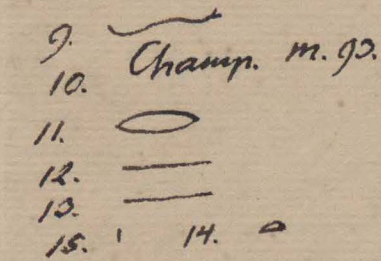 9.
10. Champ. m. 90.
11.
12.
13.
15. 14.